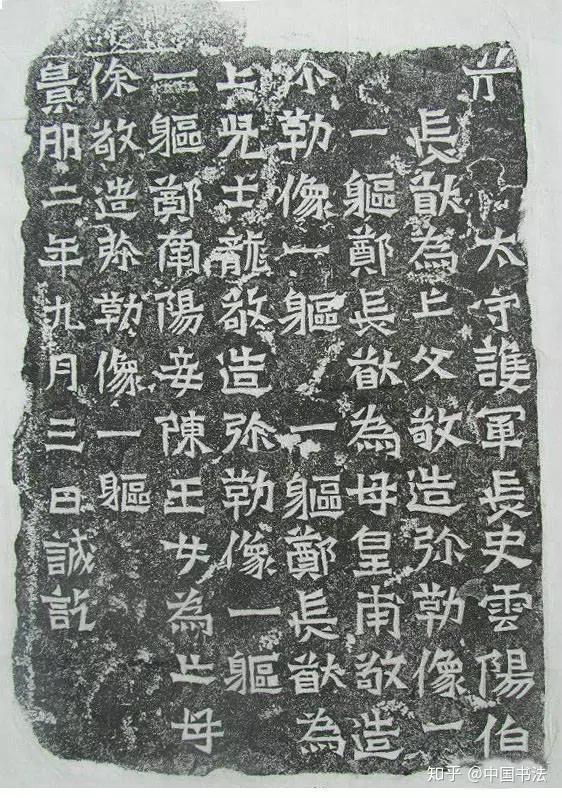 太守護軍長史雲陽伯
長猷為亡父敬造弥勒像一
一軀鄭長猷為母皇甫敬造
弥勒像一軀一軀鄭長猷為
亡兒士龍敬造弥勒像一軀
一軀鄭南陽妾陳玉女為亡母
徐敬造弥勒像一軀
景明二年九月三日誡訖
知乎 @中国书法